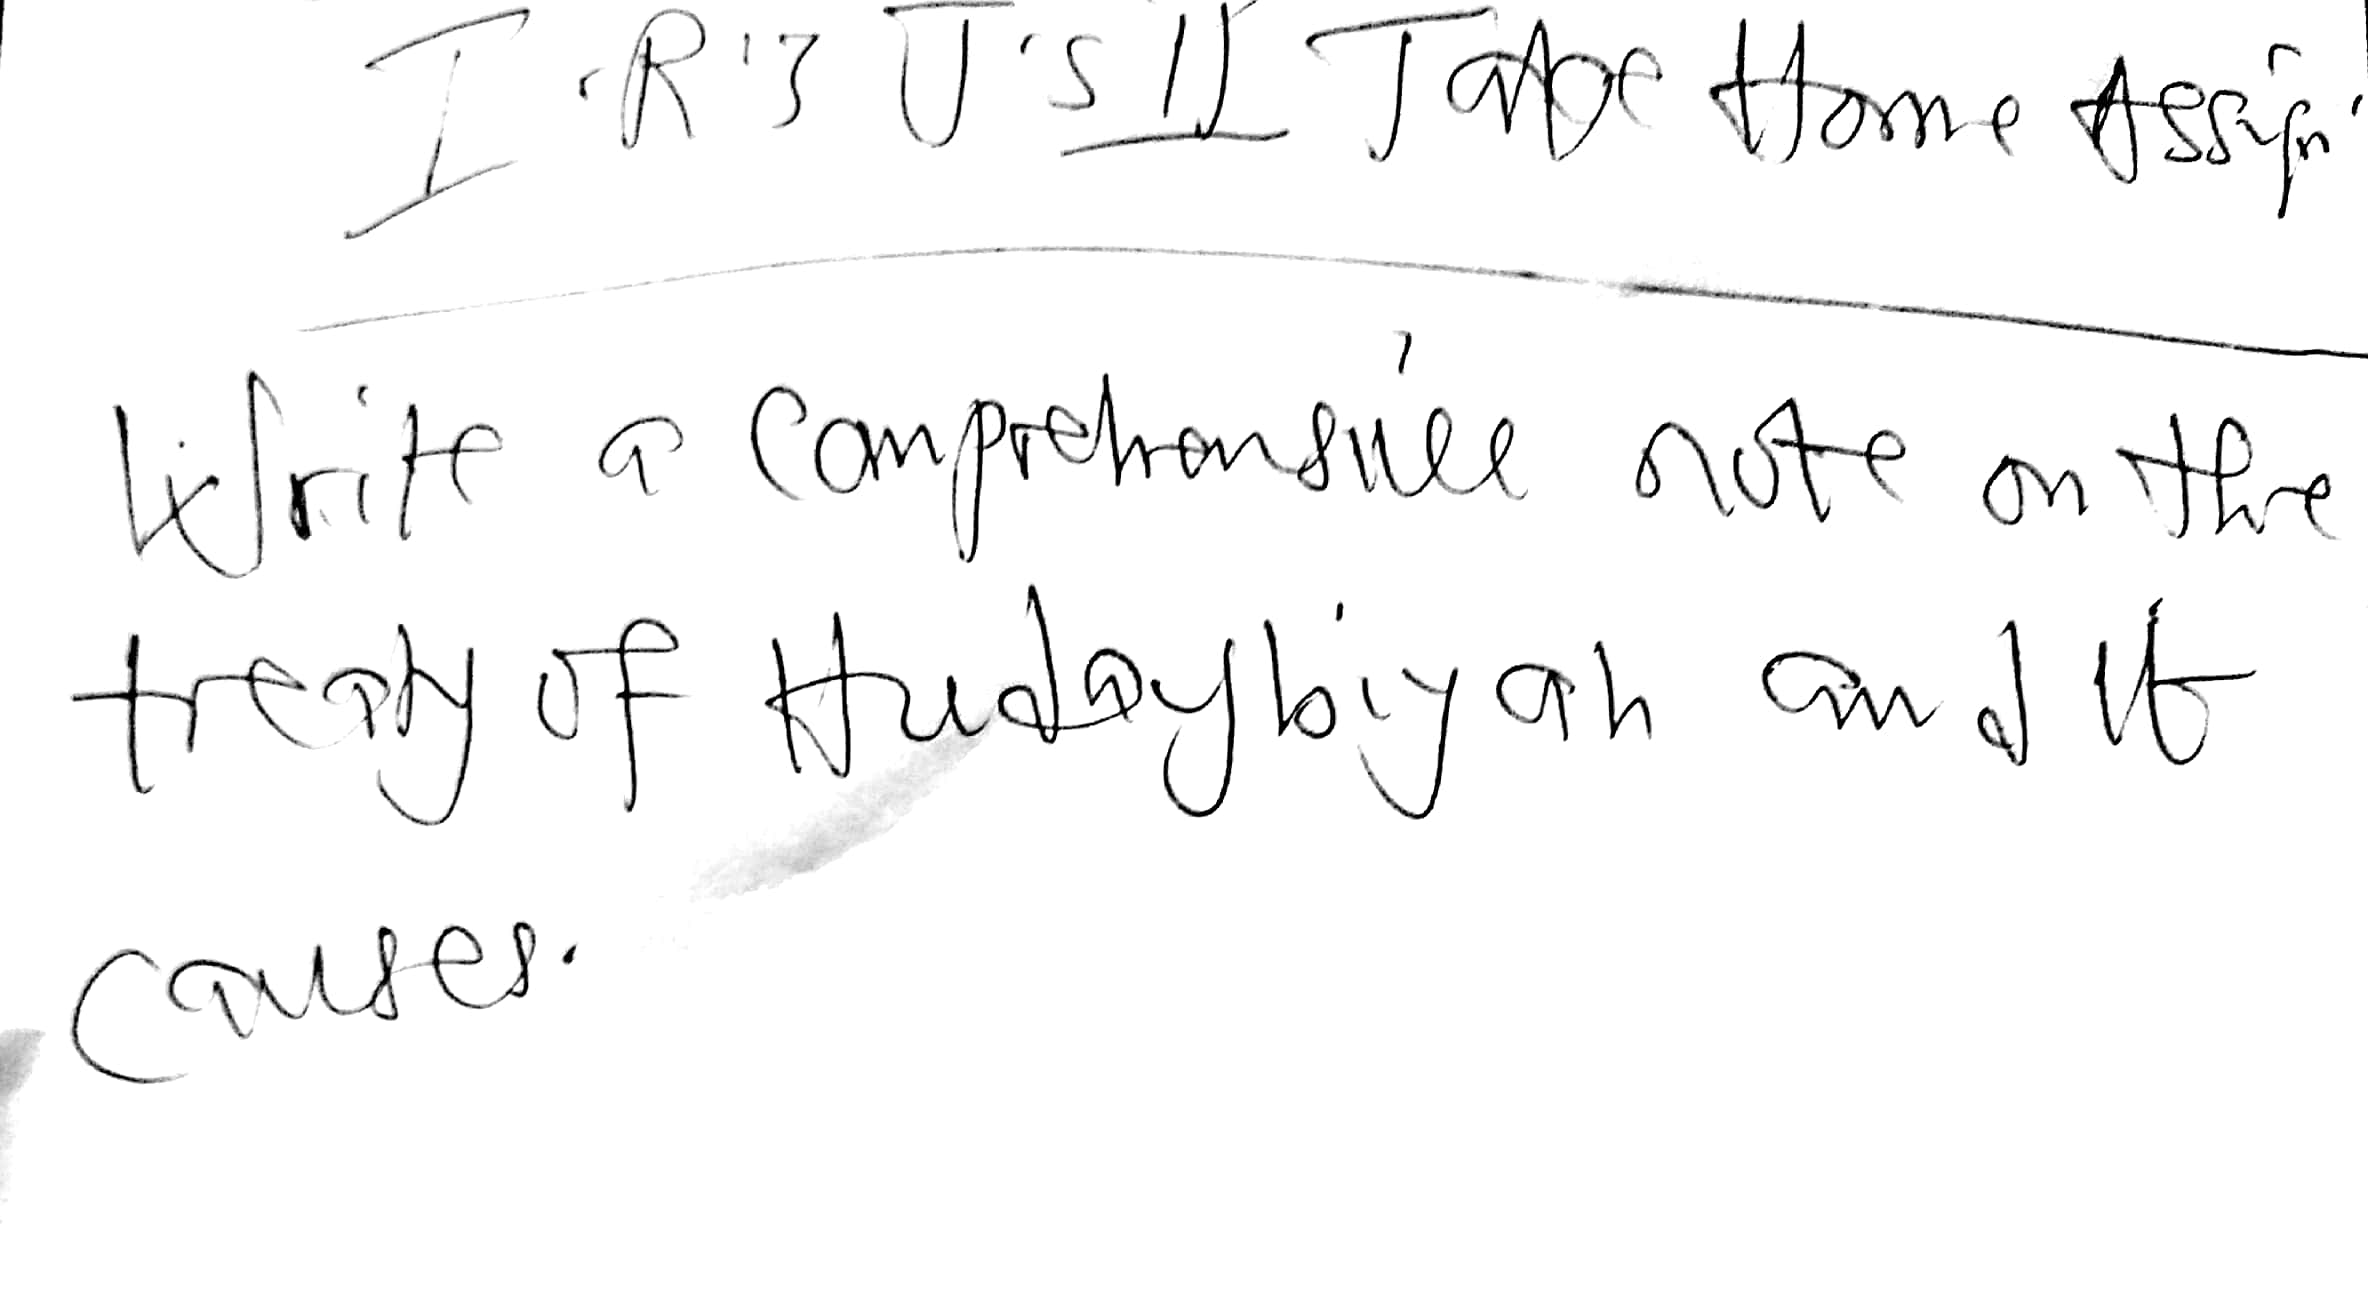 Take Home Assign
Write a comprehensive note on the
treaty of Hudaybiyah and it
causes.